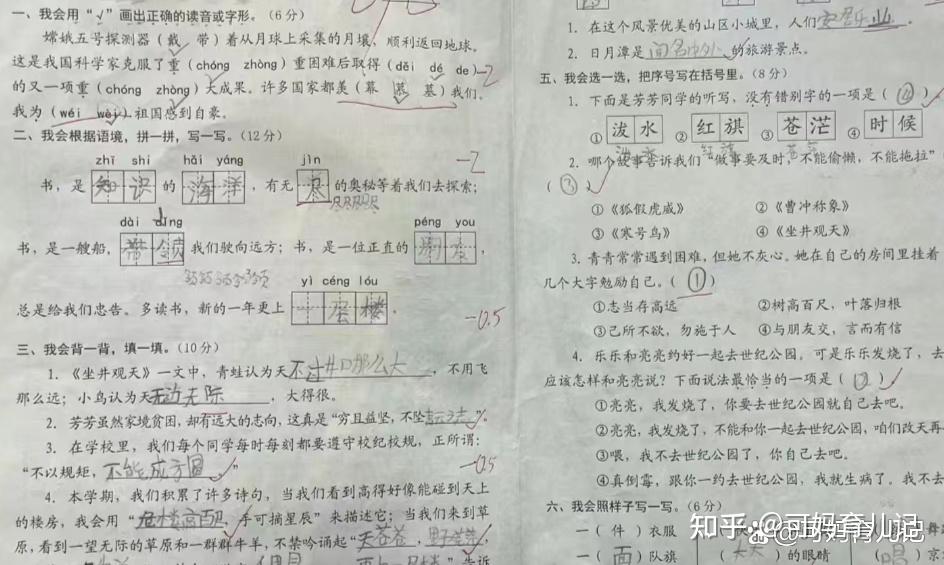 一、我会用“√”画出正确的读音或字形。（6分）
嫦娥五号探测器（戴 带）着从月球上采集的月壤，顺利返回地球。
这是我国科学家克服了重（chóng zhòng）重困难后取得（děi dé de）
的又一项重（chóng zhòng）大成果。许多国家都羡（幕 慕 墓）我们，
我为（wéi wèi）祖国感到自豪。
-2
二、我会根据语境，拼一拼，写一写。（12分）
zhī shi hǎi yáng jìn
-2
书，是 知识 的 海洋 ，有无 的奥秘等着我们去探索；
dài péng you
书，是一艘船， 带 我们驶向远方；书，是一位正直的 朋友 ，
yì céng lóu
总是给我们忠告。多读书，新的一年更上 一层楼 。
-0.5
三、我会背一背，填一填。（10分）
1. 《坐井观天》一文中，青蛙认为天不过井口那么大，不用飞
那么远；小鸟认为天无边无际，大得很。
2. 芳芳虽然家境贫困，却有远大的志向，这真是“穷且益坚，不坠
3. 在学校里，我们每个同学每时每刻都要遵守校纪校规，正所谓：
“不以规矩，不能成方圆”
-0.5
4. 本学期，我们积累了许多诗句，当我们看到高得好像能碰到天上
的楼房，我会用“危楼高百尺，手可摘星辰”来描述它；当我们来到草
原，看到一望无际的草原和一群群牛羊，不禁吟诵起“天苍苍，野茫茫，
告诉
1. 在这个风景优美的山区小城里，人们安居乐业。
2. 日月潭是闻名中外的旅游景点。
五、我会选一选，把序号写在括号里。（8分）
1. 下面是芳芳同学的听写，没有错别字的一项是（④）
①泼水 ②红旗 ③苍茫 ④时候
2. 哪个故事告诉我们“做事要及时，不能偷懒，不能拖拉”
（③）
①《狐假虎威》 ②《曹冲称象》
③《寒号鸟》 ④《坐井观天》
3. 青青常常遇到困难，但她不灰心。她在自己的房间里挂着
几个大字勉励自己。（①）
①志当存高远 ②树高百尺，叶落归根
③己所不欲，勿施于人 ④与朋友交，言而有信
4. 乐乐和亮亮约好一起去世纪公园，可是乐乐发烧了，去
应该怎样和亮亮说？下面说法最恰当的一项是（②）
①亮亮，我发烧了，你要去世纪公园就自己去吧。
②亮亮，我发烧了，不能和你一起去世纪公园，咱们改天再
③喂，我不去世纪公园了，你自己去吧。
④真倒霉，跟你一约去世纪公园，我就生病了。我不去
六、我会照样子写一写。（6分）
一（件）衣服
一（面）队旗 （大大）的眼睛 （唱）京
知乎 @可妈育儿记